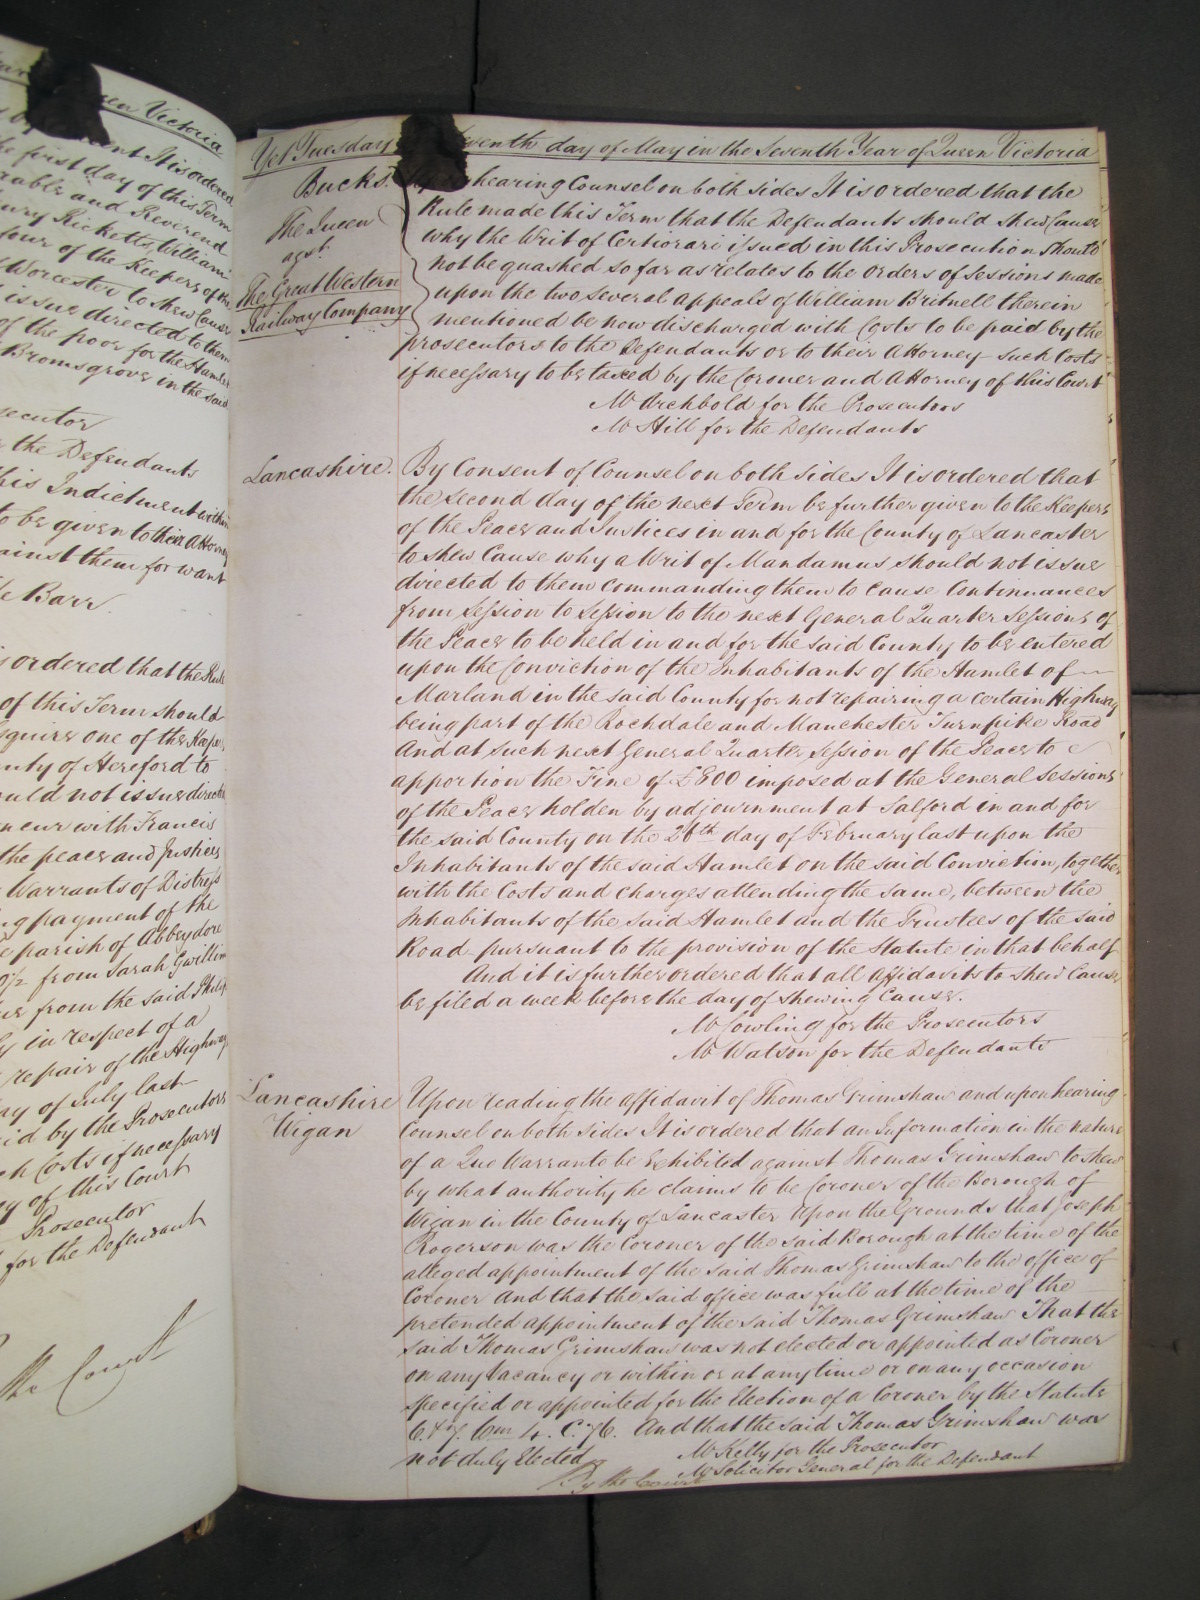 en Victoria
It is ordered
the first day of this Term
rable and Reverend
ury Ricketts William
four of the Keepers of the
Worcester to shew Cause
issue directed to them
of the poor for the Hamlet
Bromsgrove in the said
secutor
the Defendants
his Indictment within
to be given to their Attorney
ainst them for want
Barr.
is ordered that the Rule
of this Term should
squire one of the Keepers
unty of Hereford to
ould not issue directed
neur with Francis
the peace and Justices
Warrants of Distress
ng payment of the
e parish of Abbeydore
from Sarah Gwillim
from the said Philip
in respect of a
repair of the Highway
ay of July last
id by the Prosecutors
ch Costs if necessary
ey of this Court
Prosecutor
for the Defendant
the Court
Yet Tuesday eventh day of May in the Seventh Year of Queen Victoria
Bucks.
The Queen
agst.
The Great Western
Railway Company
hearing Counsel on both sides It is ordered that the
Rule made this Term that the Defendants should shew Cause
why the Writ of Certiorari issued in this Prosecution should
not be quashed so far as relates to the orders of Sessions made
upon the two several appeals of William Britnell therein
mentioned be now discharged with Costs to be paid by the
prosecutors to the Defendants or to their Attorney such Costs
if necessary to be taxed by the Coroner and Attorney of this Court
Mr Archbold for the Prosecutors
Mr Hill for the Defendants
Lancashire.
By Consent of Counsel on both sides It is ordered that
the second day of the next Term be further given to the Keepers
of the Peace and Justices in and for the County of Lancaster
to shew Cause why a Writ of Mandamus should not issue
directed to them commanding them to cause Continuances
from Session to Session to the next General Quarter Sessions of
the Peace to be held in and for the said County to be entered
upon the Conviction of the Inhabitants of the Hamlet of
Marland in the said County for not repairing a certain Highway
being part of the Rochdale and Manchester Turnpike Road
And at such next General Quarter Session of the Peace to
apportion the Fine of £800 imposed at the General Sessions
of the Peace holden by adjournment at Salford in and for
the said County on the 26th day of February last upon the
Inhabitants of the said Hamlet on the said Conviction, together
with the Costs and charges attending the same, between the
Inhabitants of the said Hamlet and the Trustees of the said
Road pursuant to the provision of the Statute in that behalf
And it is further ordered that all Affidavits to shew Cause
be filed a week before the day of shewing Cause.
Mr Cowling for the Prosecutors
Mr Watson for the Defendants
Lancashire
Wigan
Upon reading the affidavit of Thomas Grimshaw and upon hearing
Counsel on both sides It is ordered that an Information in the nature
of a Quo Warranto be Exhibited against Thomas Grimshaw to shew
by what authority he claims to be Coroner of the Borough of
Wigan in the County of Lancaster Upon the Grounds that Joseph
Rogerson was the Coroner of the said Borough at the time of the
alleged appointment of the said Thomas Grimshaw to the office of
Coroner And that the said office was full at the time of the
pretended appointment of the said Thomas Grimshaw That the
said Thomas Grimshaw was not elected or appointed as Coroner
on any Vacancy or within or at any time or on any occasion
specified or appointed for the Election of a Coroner by the Statute
6. & 7. Wm 4. C. 76. And that the said Thomas Grimshaw was
not duly Elected
Mr Kelly for the Prosecutor
Mr Solicitor General for the Defendant
By the Court